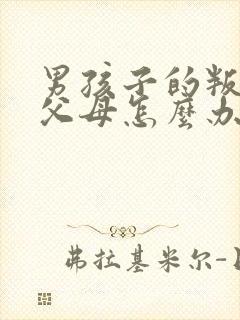 男孩子的叛
父母怎麼办
弗拉基米尔-